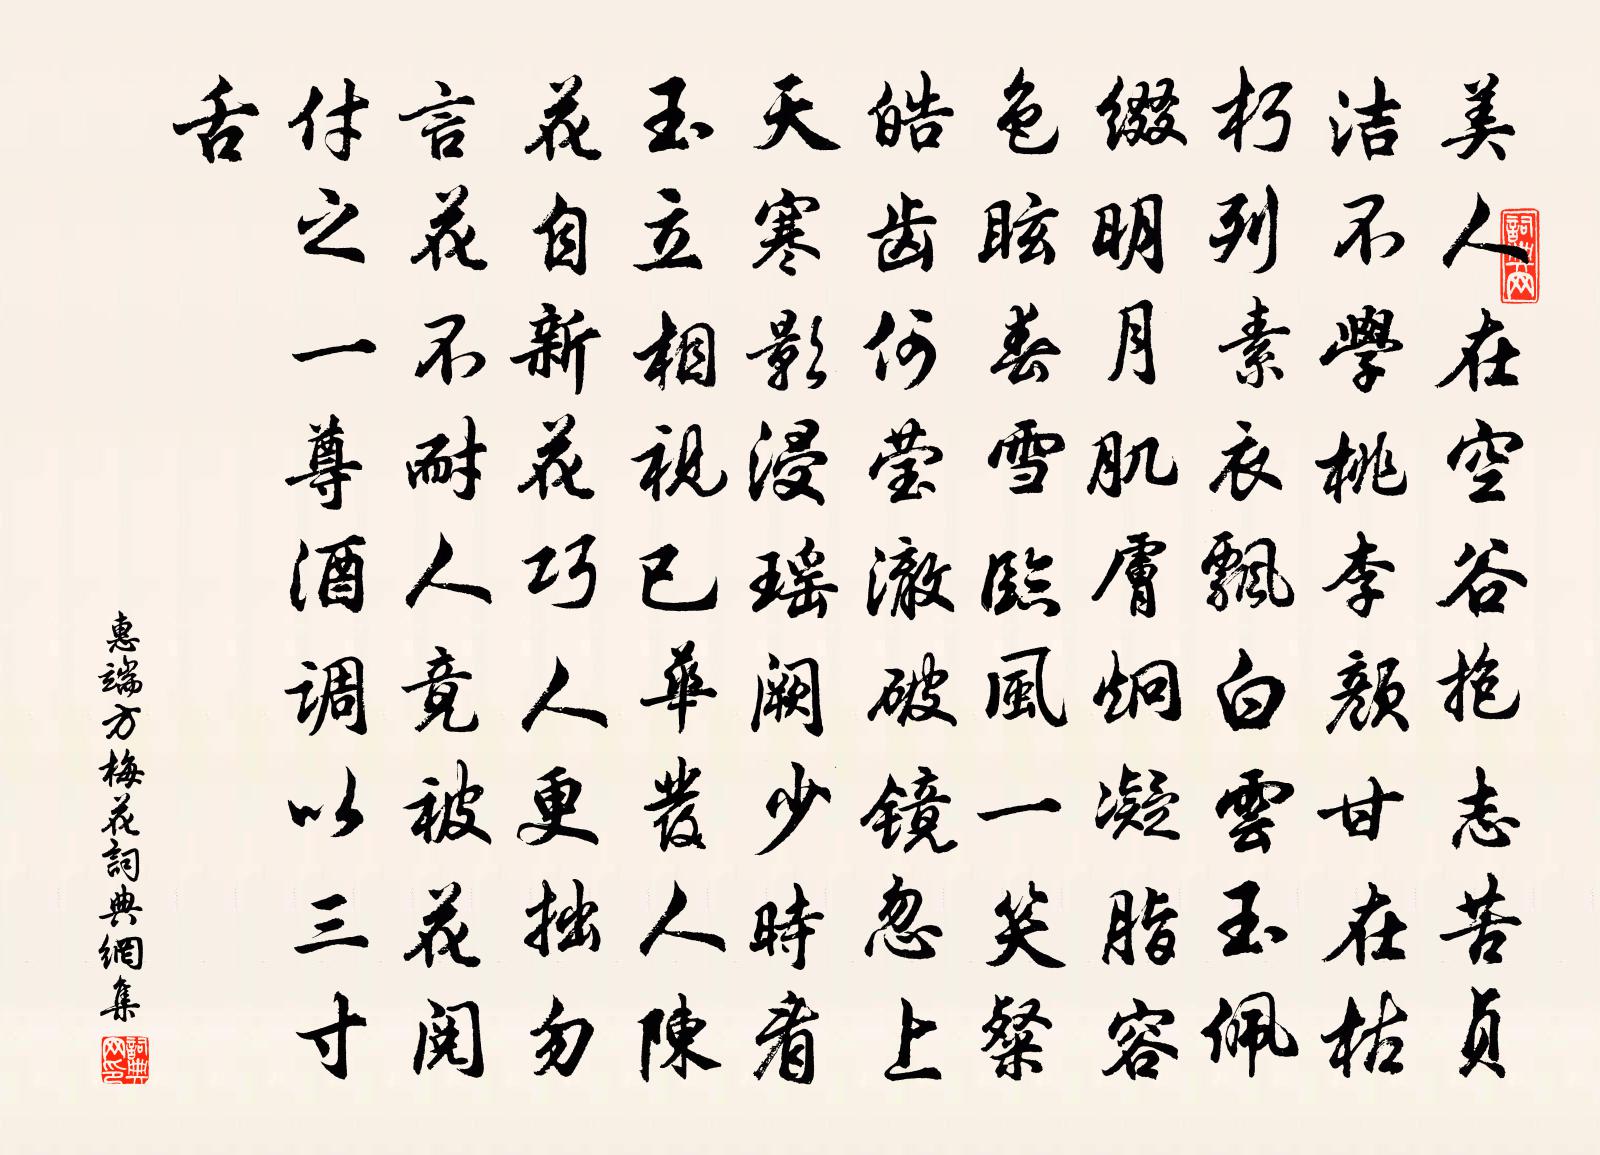 美人在空谷抱志苦貞
洁不學桃李顏甘在枯
朽列素衣飄白雲玉佩
缀明月肌膚炯凝脂容
色眩春雪臨風一笑粲
皓齿何莹澈破镜忽上
天寒影浸瑶阙少時看
玉立相視已華發人陳
花自新花巧人更拙勿
言花不耐人竟被花阅
付之一尊酒调以三寸
舌
惠端方梅花詞典網集
詞典网印